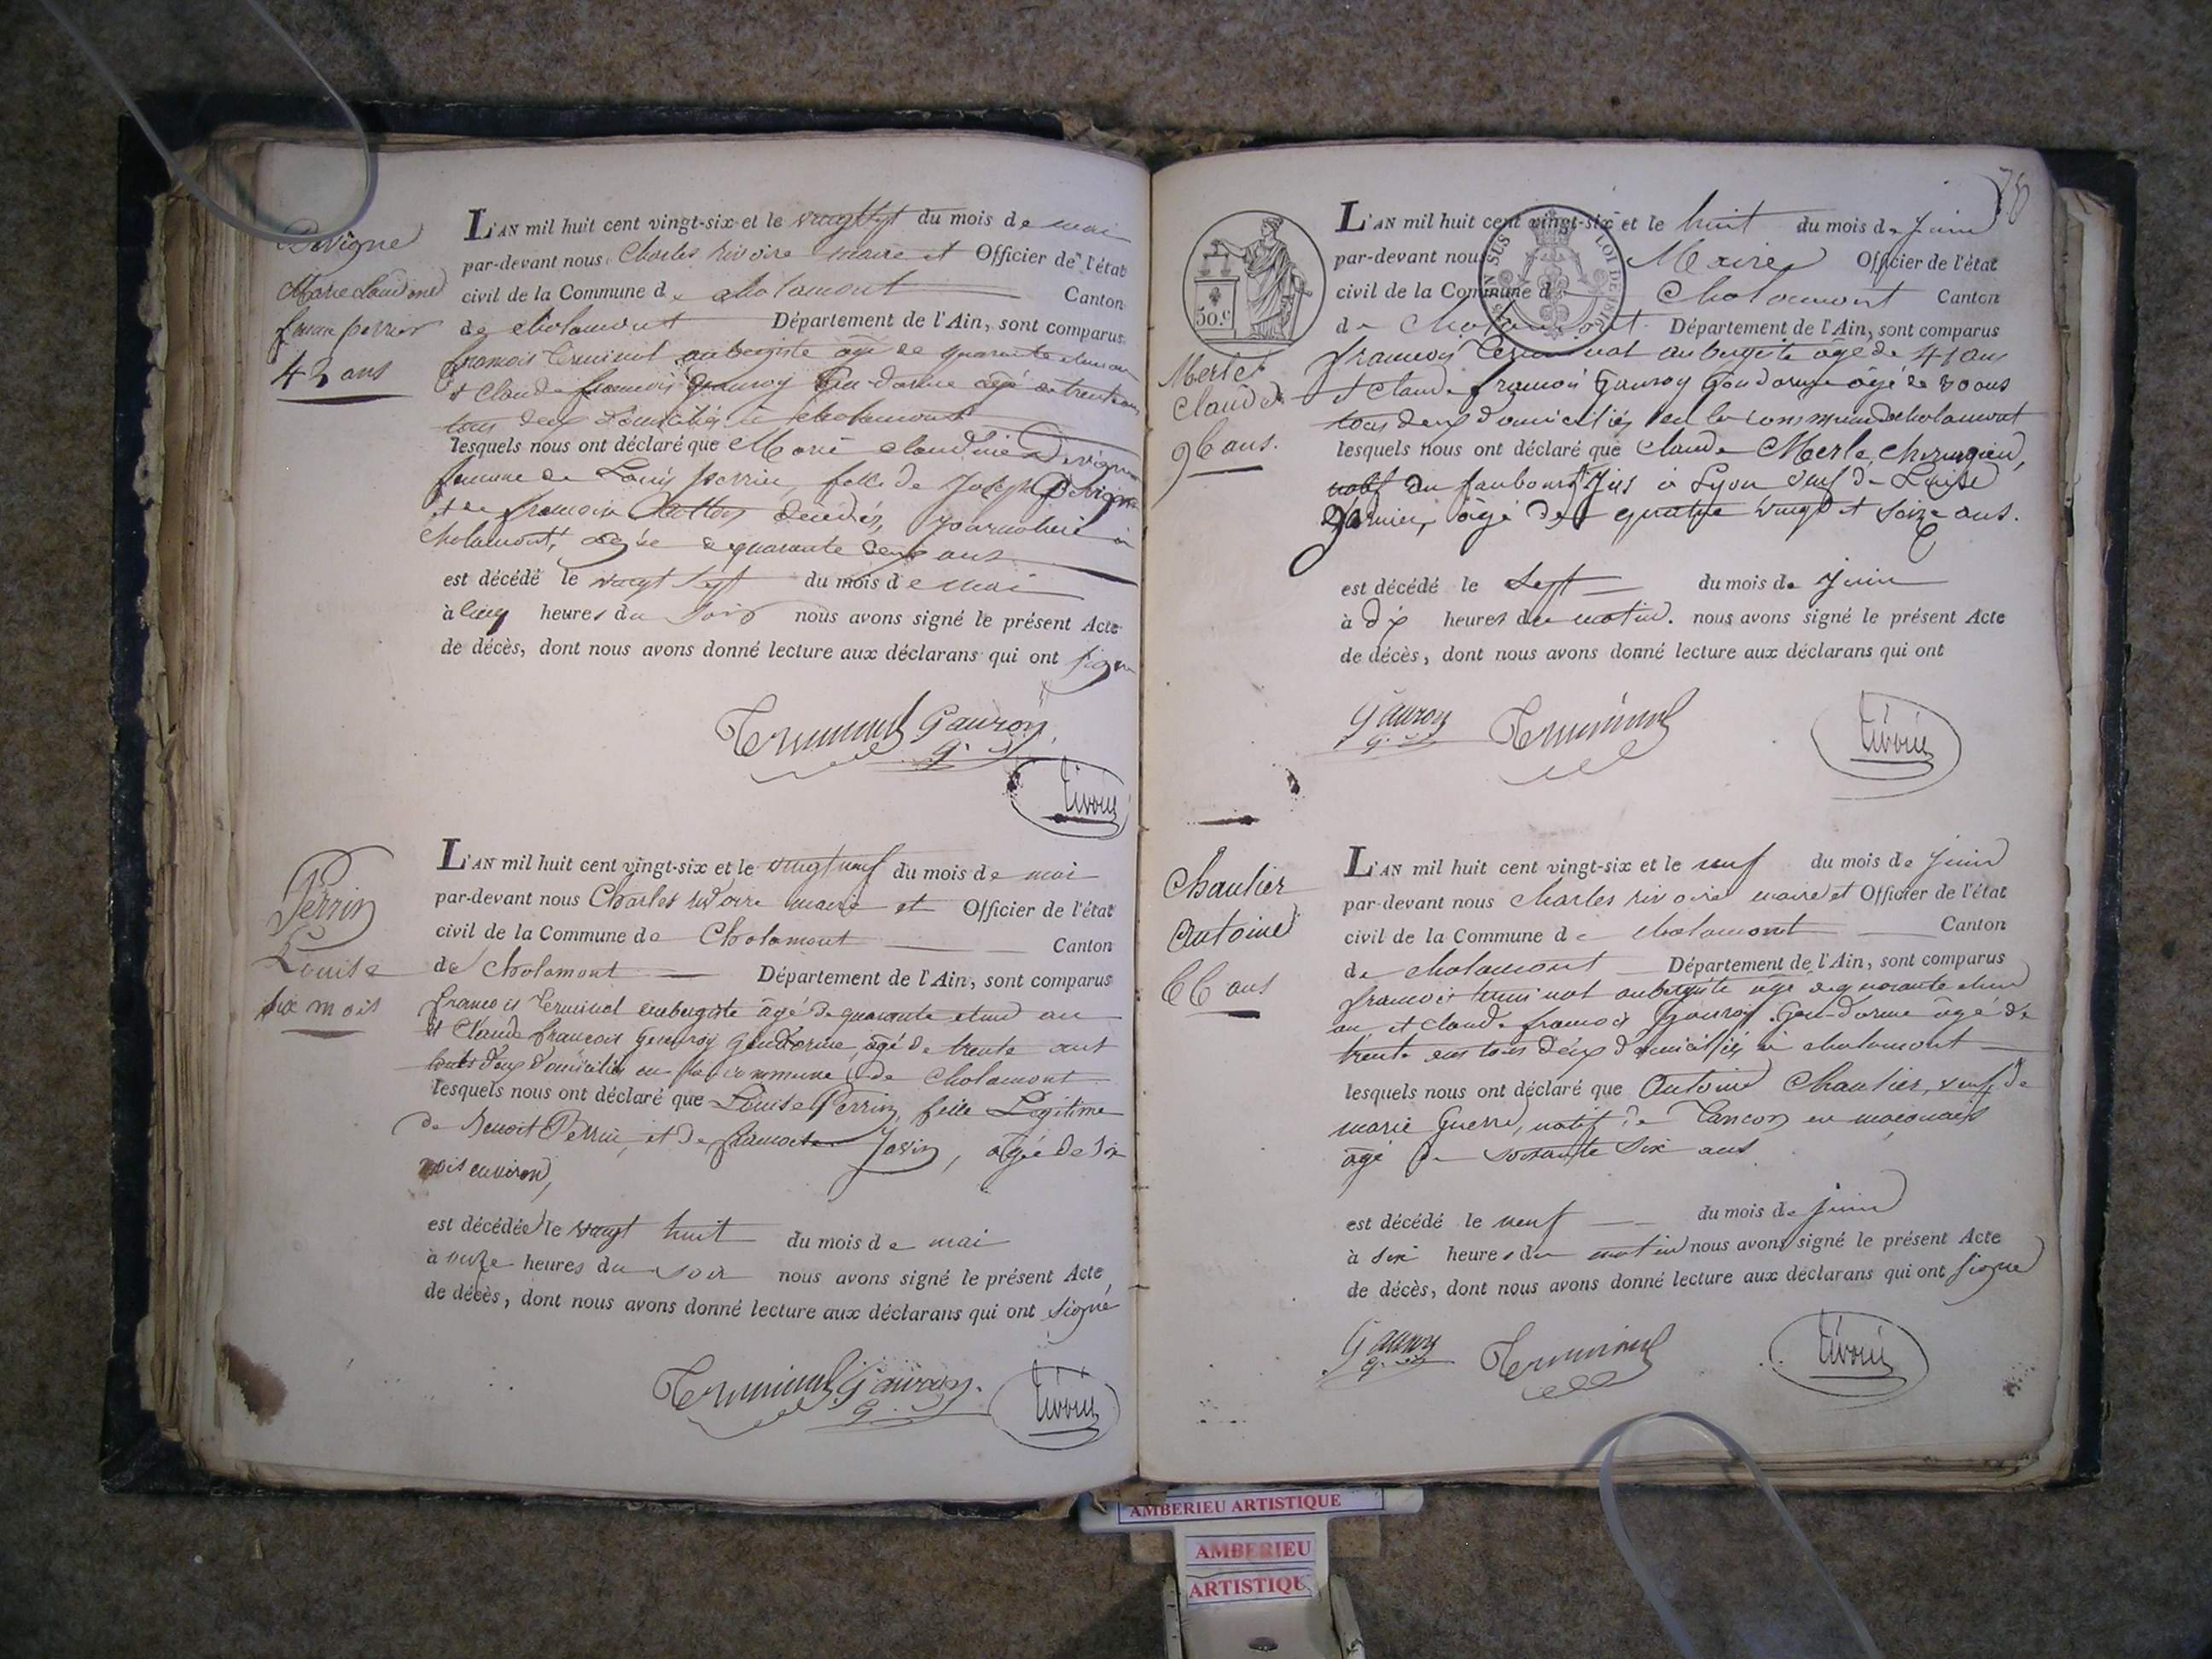 Devigne
Marie claudine
femme perrier
42 ans
L'AN mil huit cent vingt-six et le vingt sept du mois de mai
par-devant nous Charles rivoire maire et Officier de l'état
civil de la Commune de cholamont Canton
de cholamont Département de l'Ain, sont comparus
françois Terminal aubergiste âgé de quarante et un an
et Claude françois Gauroy Gendarme âgé de trente ans
tous deux domiciliés à cholamont
lesquels nous ont déclaré que Marie claudine Devigne
femme de Louis perrier, fille de Joseph Devigne
et de françoise décédés, journalière à
cholamont, âgée de quarante deux ans
est décédé le vingt sept du mois de mai
à cinq heures du soir nous avons signé le présent Acte
de décès, dont nous avons donné lecture aux déclarans qui ont signé
Terminal Gauroy
rivoire
Perrin
Louise
six mois
L'AN mil huit cent vingt-six et le vingt neuf du mois de mai
par-devant nous Charles rivoire maire et Officier de l'état
civil de la Commune de Cholamont Canton
de Cholamont Département de l'Ain, sont comparus
françois Terminal aubergiste âgé de quarante et un an
et Claude françois Gauroy Gendarme, âgé de trente ans
tous deux domiciliés en la commune de Cholamont
lesquels nous ont déclaré que Louise Perrin, fille Légitime
de Benoit Perrin, et de françoise , âgée de six
mois environ,
est décédée le vingt huit du mois de mai
à onze heures du soir nous avons signé le présent Acte
de décès, dont nous avons donné lecture aux déclarans qui ont signé
Terminal Gauroy rivoire
78
50.c
LOI DE 1816
Merle
Claude
96 ans.
L'AN mil huit cent vingt-six et le huit du mois de Juin
par-devant nous Maire Officier de l'état
civil de la Commune de Cholamont Canton
de Cholamont Département de l'Ain, sont comparus
françois Terminal aubergiste âgé de 41 ans
et Claude françois Gauroy Gendarme âgé de 30 ans
tous deux domiciliés en la commune de cholamont
lesquels nous ont déclaré que Claude Merle, chirurgien,
natif du faubourg à Lyon veuf de Louise
garnier, âgé de quatre vingt et seize ans.
est décédé le sept du mois de Juin
à dix heures du matin. nous avons signé le présent Acte
de décès, dont nous avons donné lecture aux déclarans qui ont
Gauroy Terminal rivoire
Chanlier
Antoine
66 ans
L'AN mil huit cent vingt-six et le neuf du mois de Juin
par-devant nous Charles rivoire maire et Officier de l'état
civil de la Commune de cholamont Canton
de cholamont Département de l'Ain, sont comparus
françois terminal aubergiste âgé de quarante et un
an et claude françois Gauroy Gendarme âgé de
trente ans tous deux domiciliés à cholamont
lesquels nous ont déclaré que Antoine Chanlier, veuf de
marie Guerre, natif de Tancon en maconais
âgé de soixante six ans
est décédé le neuf du mois de juin
à six heures du matin nous avons signé le présent Acte
de décès, dont nous avons donné lecture aux déclarans qui ont signé
Gauroy Terminal rivoire
AMBERIEU ARTISTIQUE
AMBERIEU
ARTISTIQUE